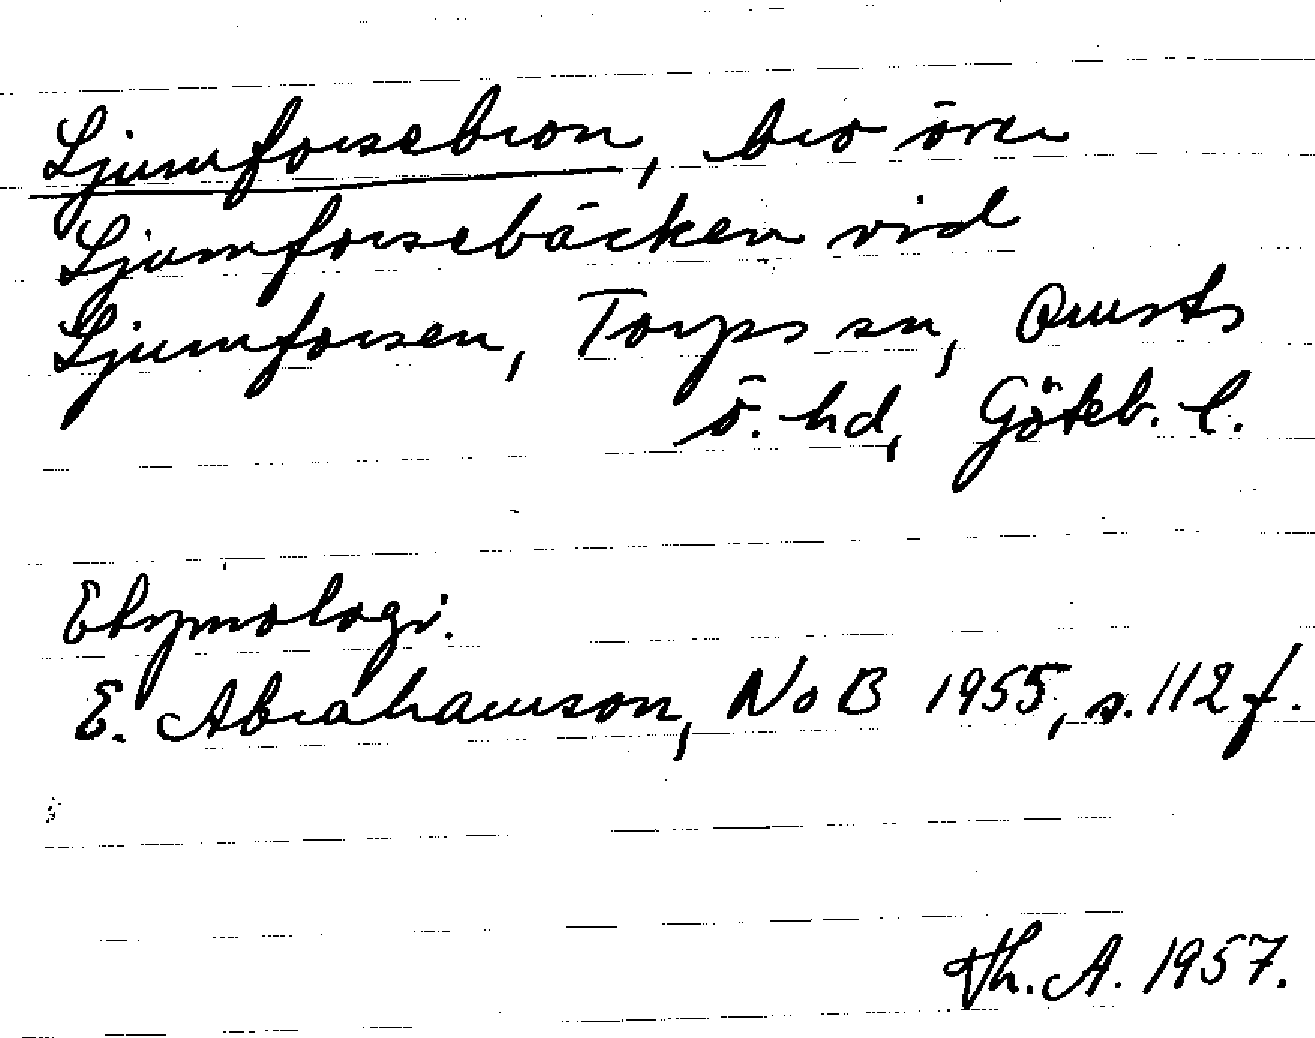 Ljumforsebron, bro över
Ljumforsebäcken vid
Ljumforsen, Torps sn, Orusts
ö. hd, Göteb. l.
Etymologi.
E. Abrahamson, NoB 1955, s. 112 f.
Th. A. 1957.